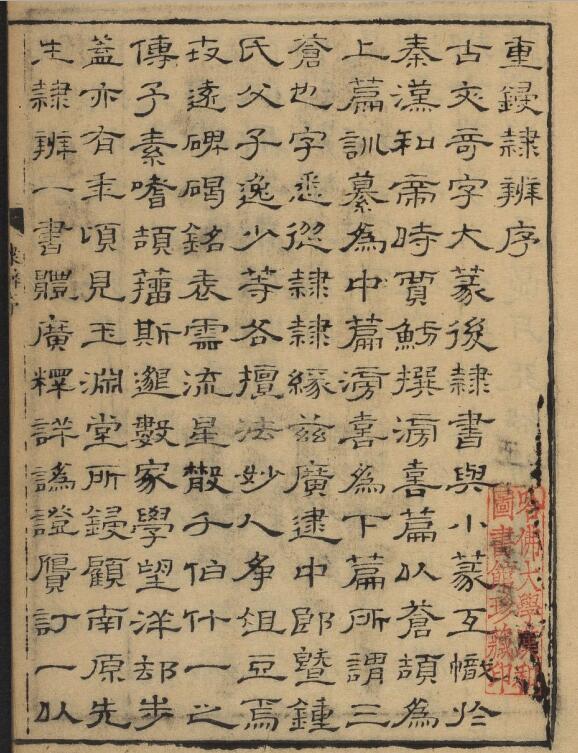 重鋟隸辨序
古文奇字大篆後隸書與小篆互幟於
秦漢和帝時賈魴撰滂喜篇以蒼頡為
上篇訓纂為中篇滂喜為下篇所謂三
蒼也字悉從隸隸緣茲廣逮中郎暨鍾
氏父子逸少等各擅法妙人爭俎豆焉
遠碑碣銘表雲流星散千伯什一之
傳予素嗜頡籀斯邈數家學望洋却步
蓋亦有年頃見玉淵堂所鋟顧南原先
生隸辨一書體廣釋詳譌證贗訂一以
隸辨序
哈佛大學漢和
圖書館珍藏印